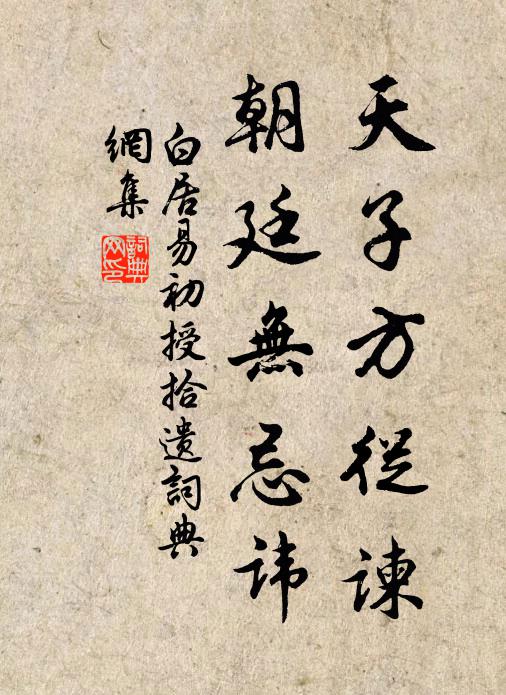 天子方從諫
朝廷無忌諱
白居易初授拾遺詞典
網集
詞典
网印